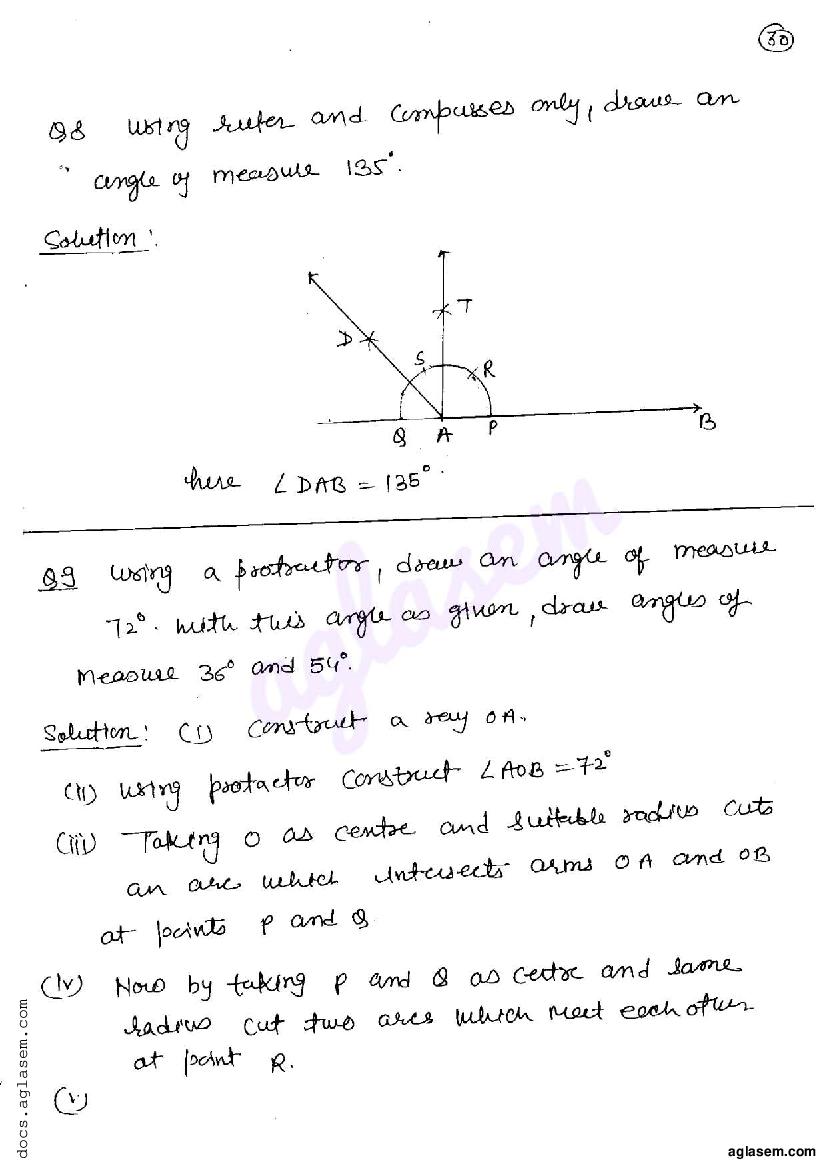 30
Q8 Using ruler and compasses only, draw an
angle of measure 135°.
Solution:
T
D
S
R
Q A P B
here ∠DAB = 135°.
Q9 Using a protractor, draw an angle of measure
72°. With this angle as given, draw angles of
measure 36° and 54°.
Solution: (i) Construct a ray OA.
(ii) Using protactor construct ∠AOB = 72°
(iii) Taking O as centre and suitable radius cuts
an arc which intersects arms OA and OB
at points P and Q
(iv) Now by taking P and Q as centre and same
radius cut two arcs which meet each other
at point R.
(v)
aglasem
docs.aglasem.com
aglasem.com